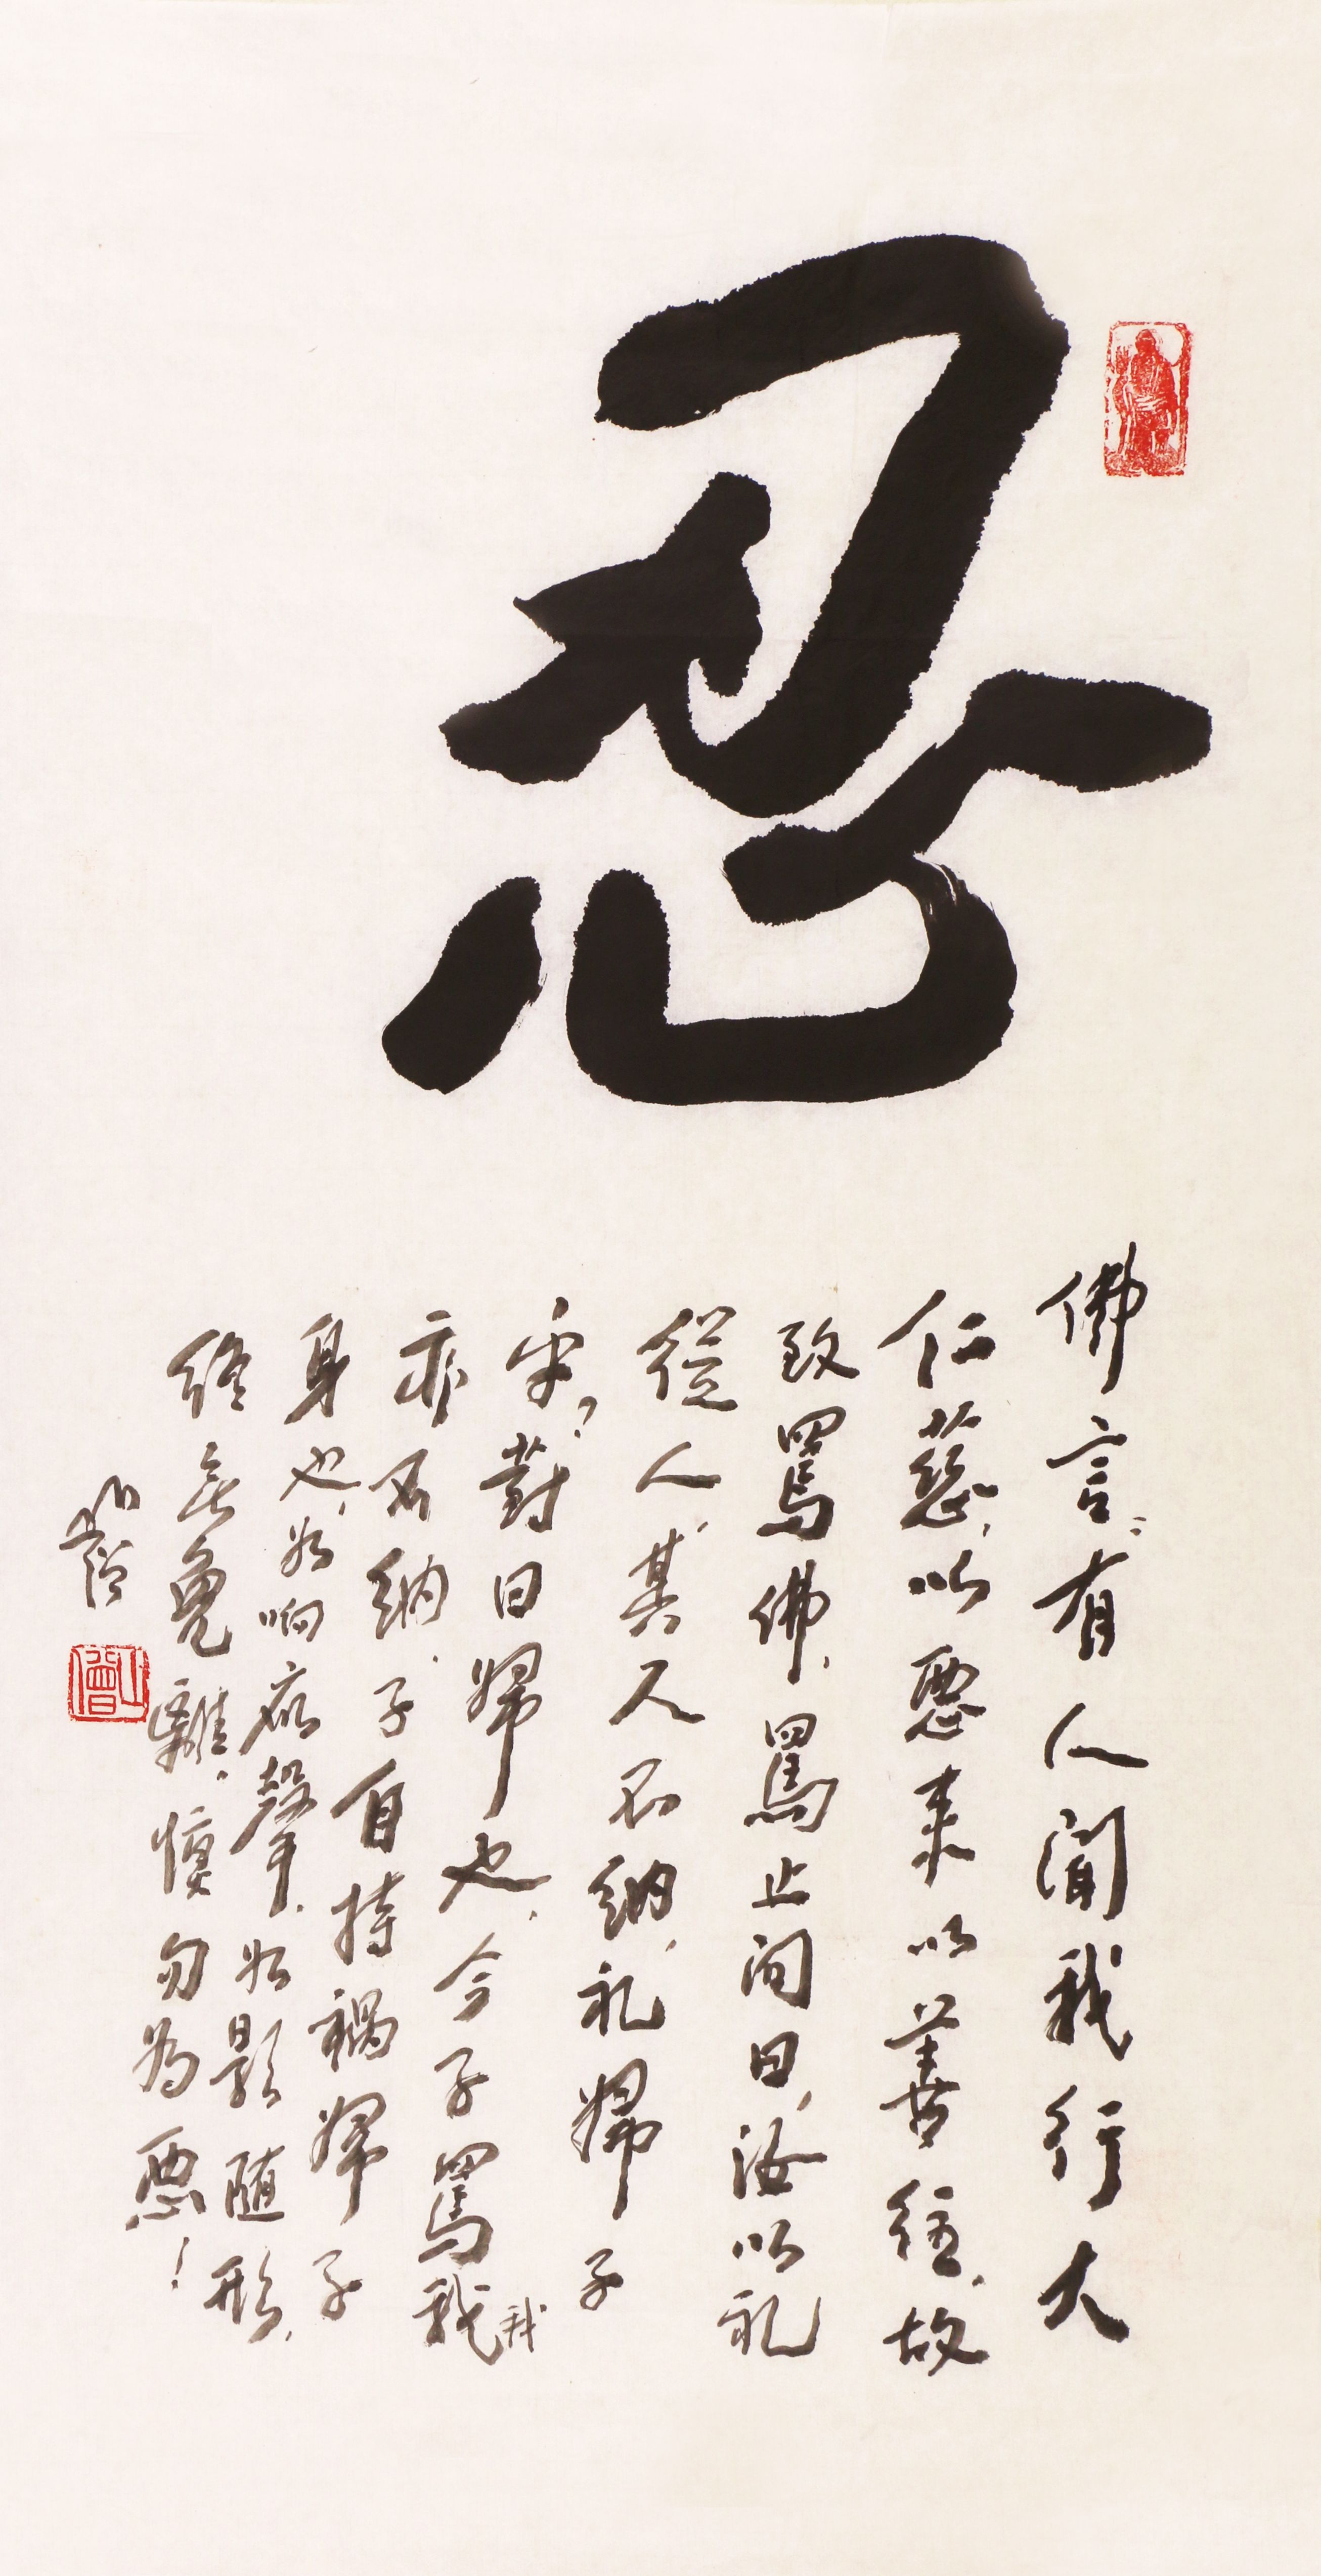 忍
佛言:有人聞我行大
仁慈,以惡来以善往,故
致罵佛,罵止问曰,汝以礼
從人,其人不納,礼歸子
乎?對曰歸也,今子罵我我
亦不納,子自持禍歸子
身也,如响应聲,如影随形,
終无免離,慎勿為惡!